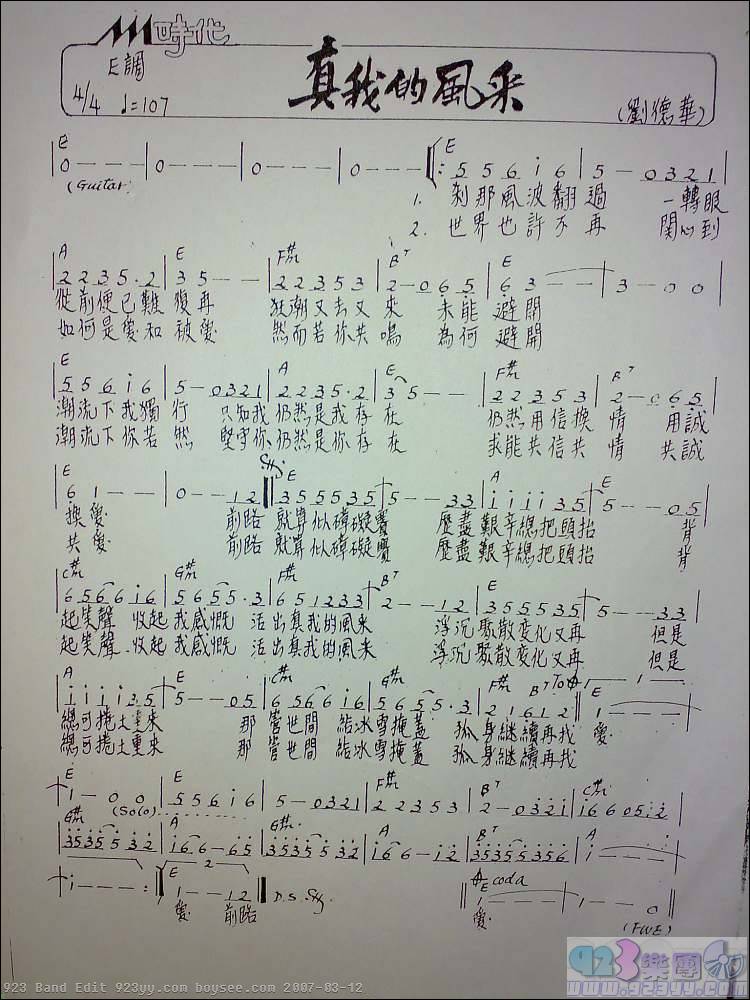 時代
E調
真我的風采
4/4 ♩=107
(劉德華)
E E
0 - - - | 0 - - - | 0 - - - | 0 - - - |: 5 5 6 i 6 | 5 - 0 3 2 1 |
(Guitar)
1. 剎那風波翻過 一轉眼
2. 世界也許不再 關心到
A E F#m B7 E
2 2 3 5 · 2 | 3 5 - - | 2 2 3 5 3 | 2 - 0 6 5 | 6 3 - - | 3 - 0 0 |
從前便已難復再 狂潮又去又來 未能避開
如何是愛和被愛 然而若你共鳴 為何避開
E A E F#m B7
5 5 6 i 6 | 5 - 0 3 2 1 | 2 2 3 5 · 2 | 3 5 - - | 2 2 3 5 3 | 2 - 0 6 5 |
潮流下我獨行 只知我仍然是我存在 仍然用信換情 用誠
潮流下你若然 堅守你仍然是你存在 求能共信共情 共誠
E E A E
6 1 - - | 0 - - 1 2 | 3 5 5 5 3 5 | 5 - - 3 3 | i i i i 3 5 | 5 - - 0 5 |
換愛 前路就算似障礙賽 歷盡艱辛總把頭抬 背
共愛 前路就算似障礙賽 歷盡艱辛總把頭抬 背
C#m G#m F#m B7 E
6 5 6 6 i 6 | 5 6 5 5 · 3 | 6 5 1 2 3 3 | 2 - - 1 2 | 3 5 5 5 3 5 | 5 - - 3 3 |
起笑聲 收起我感慨 活出真我的風采 浮沉聚散变化又再 但是
起笑聲 收起我感慨 活出真我的風采 浮沉聚散变化又再 但是
A E C#m G#m F#m B7 To E 1
i i i i 3 5 | 5 - - 0 5 | 6 5 6 6 i 6 | 5 6 5 5 · 3 | 2 1 6 1 2 | 1 - - - |
總可捲土重來 那管世間 結冰雪掩蓋 孤身継續再找 愛
總可捲土重來 那管世間 結冰雪掩蓋 孤身継續再找
E E F#m B7 C#m
1 - 0 0 | 5 5 6 i 6 | 5 - 0 3 2 1 | 2 2 3 5 3 | 2 - 0 3 2 i | i 6 6 0 5 i 2 |
(Solo)
G#m A G#m A B7 A
3 5 3 5 5 3 2 | i 6 6 - 6 5 | 3 5 3 5 5 3 2 | i 6 6 - i 2 | 3 5 3 5 5 3 5 6 | i - - - |
2
E E coda
i - - - :| 1 - - 1 2 | D.S. 1 - - - | 1 - - 0 ||
愛 前路 愛
(FINE)
923樂團
www.923yy.com
923 Band Edit 923yy.com boysee.com 2007-03-12